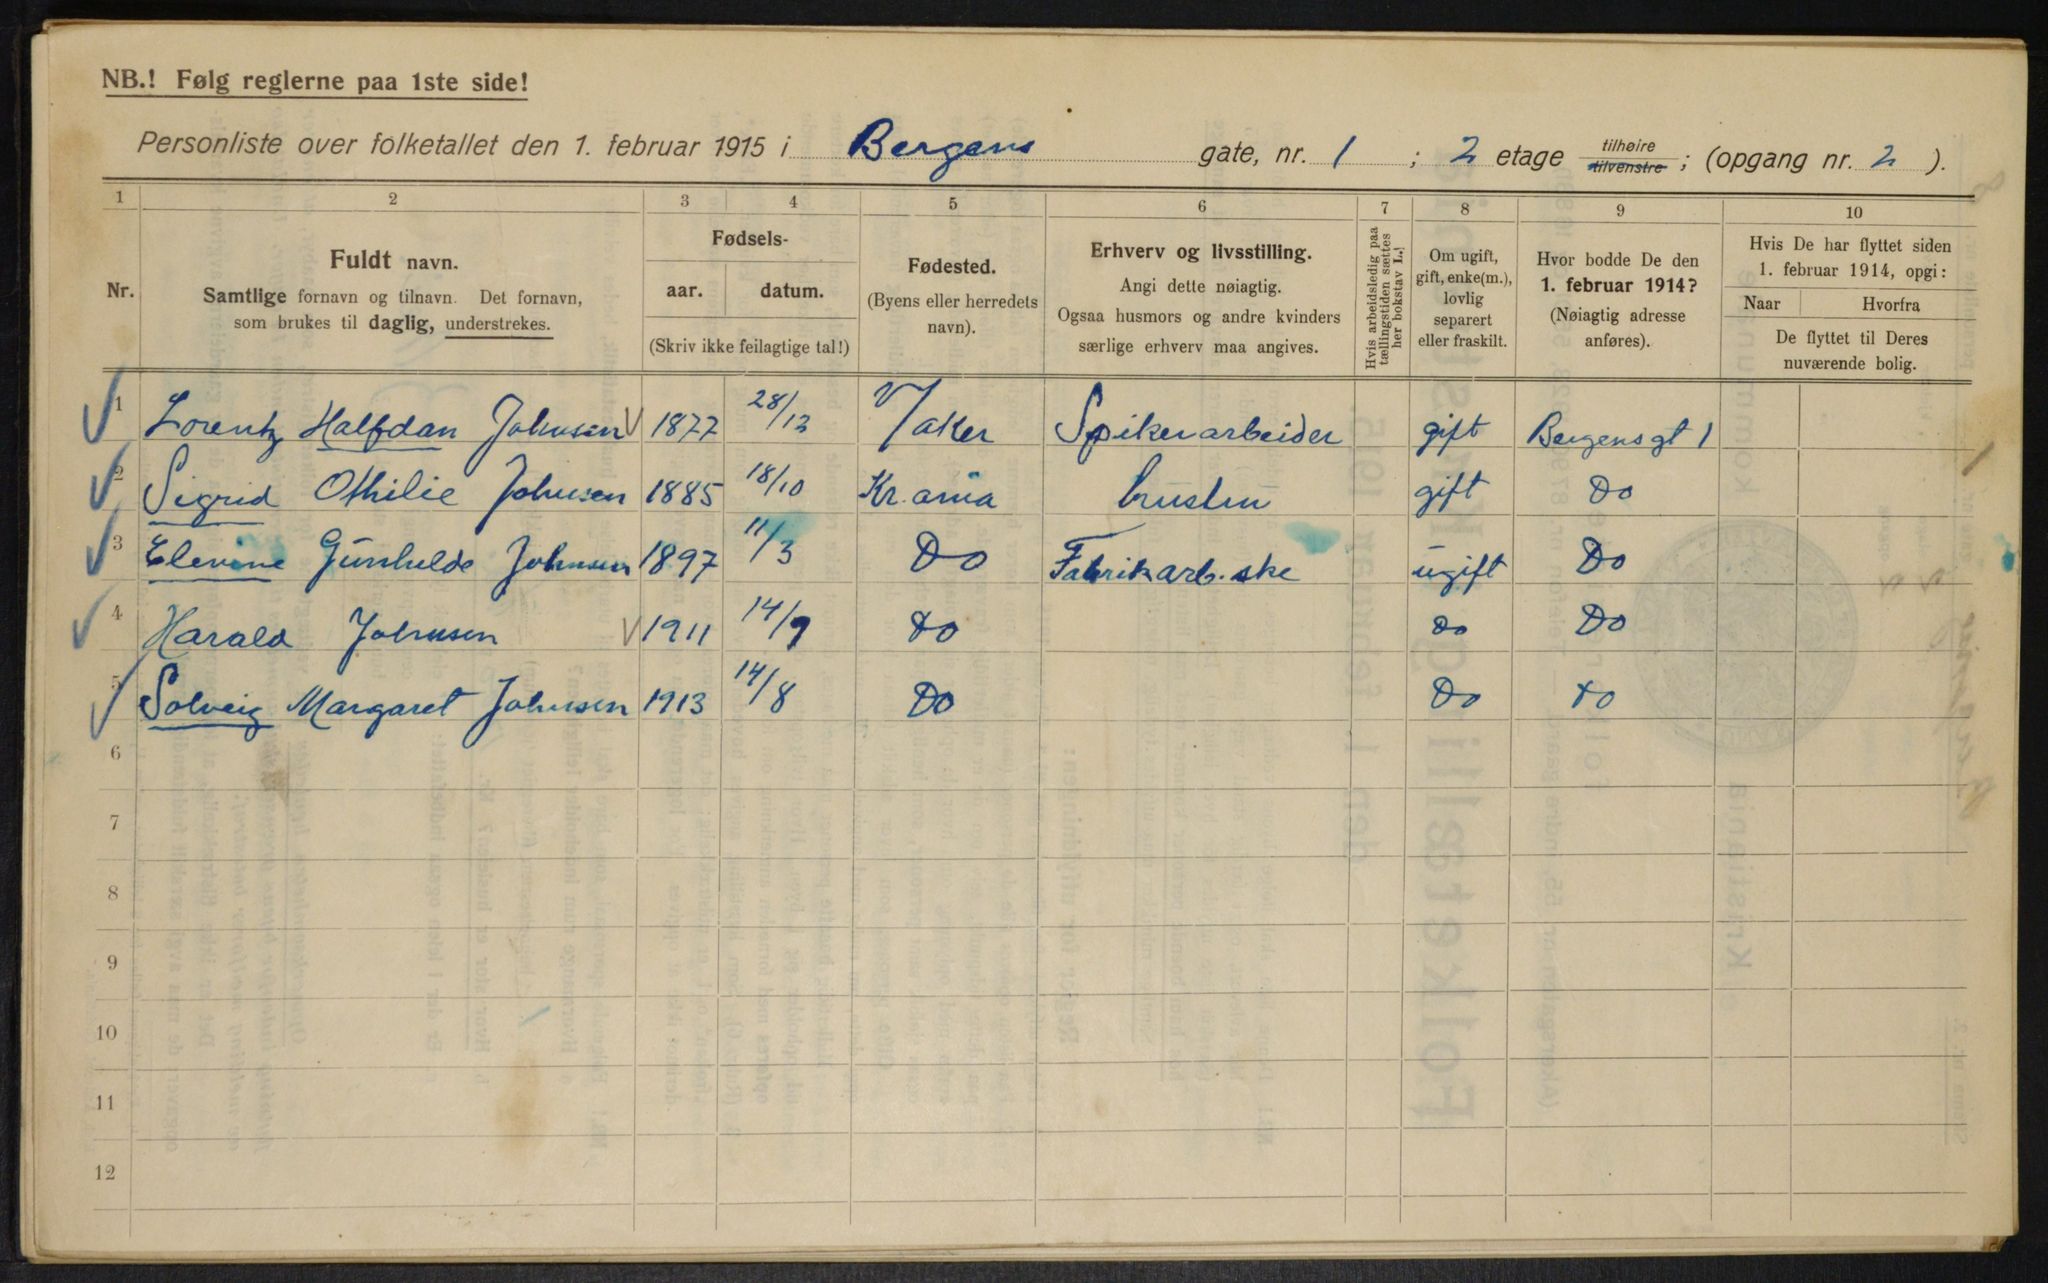 NB.! Følg reglerne paa 1ste side!
Personliste over folketallet den 1. februar 1915 i Bergens gate, nr. 1 ; 2 etage tilhøire tilvenstre ; (opgang nr. 2 ).
1 2 3 4 5 6 7 8 9 10
Nr.
Fuldt navn.
Samtlige fornavn og tilnavn. Det fornavn,
som brukes til daglig, understrekes.
Fødsels-
aar. datum.
(Skriv ikke feilagtige tal!)
Fødested.
(Byens eller herredets
navn).
Erhverv og livsstilling.
Angi dette nøiagtig.
Ogsaa husmors og andre kvinders
særlige erhverv maa angives.
Hvis arbeidsledig paa
tællingstiden sættes
her bokstav L.
Om ugift,
gift, enke(m.),
lovlig
separert
eller fraskilt.
Hvor bodde De den
1. februar 1914?
(Nøiagtig adresse
anføres).
Hvis De har flyttet siden
1. februar 1914, opgi:
Naar Hvorfra
De flyttet til Deres
nuværende bolig.
1 Lorentz Halfdan Johnsen 1877 28/12 V Aker Spikerarbeider gift Bergensgt 1
2 Sigrid Othilie Johnsen 1885 18/10 Kr.ania hustru gift Do
3 Elevine Gunhilde Johnsen 1897 11/3 Do Fabrikarb.ske ugift Do
4 Harald Johnsen 1911 14/9 Do Do Do
5 Solveig Margaret Johnsen 1913 14/8 Do Do Do
6
7
8
9
10
11
12